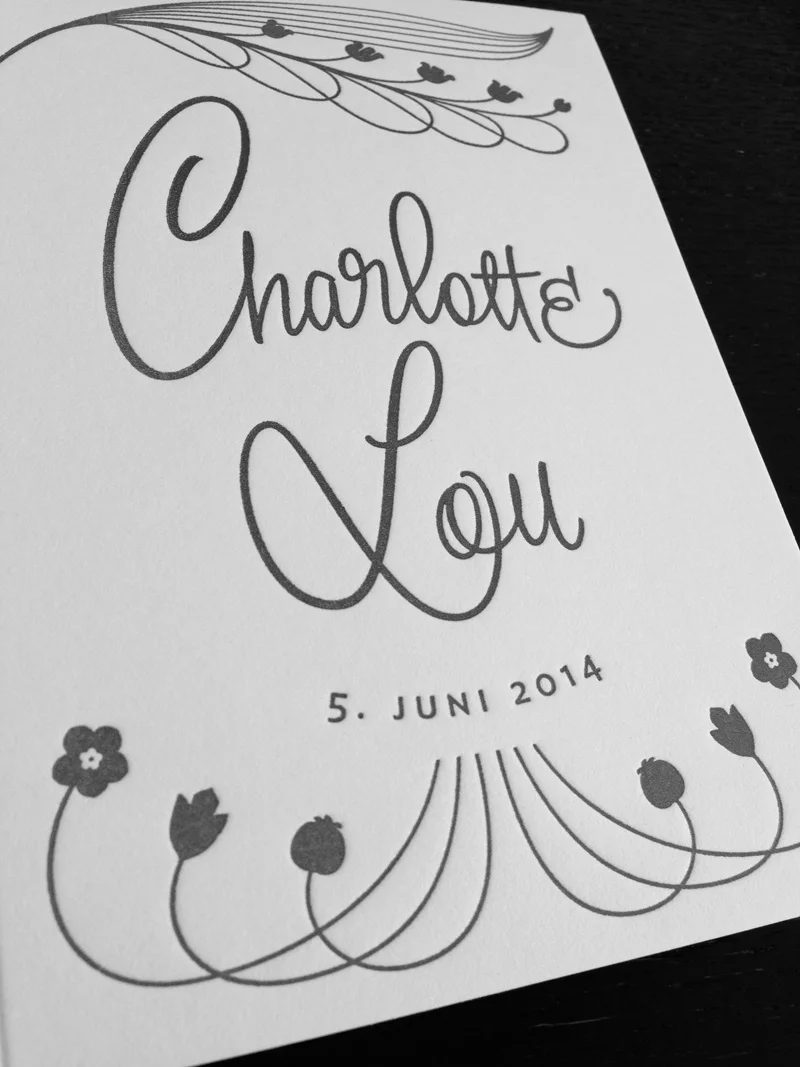 Charlotte
Lou
5. JUNI 2014